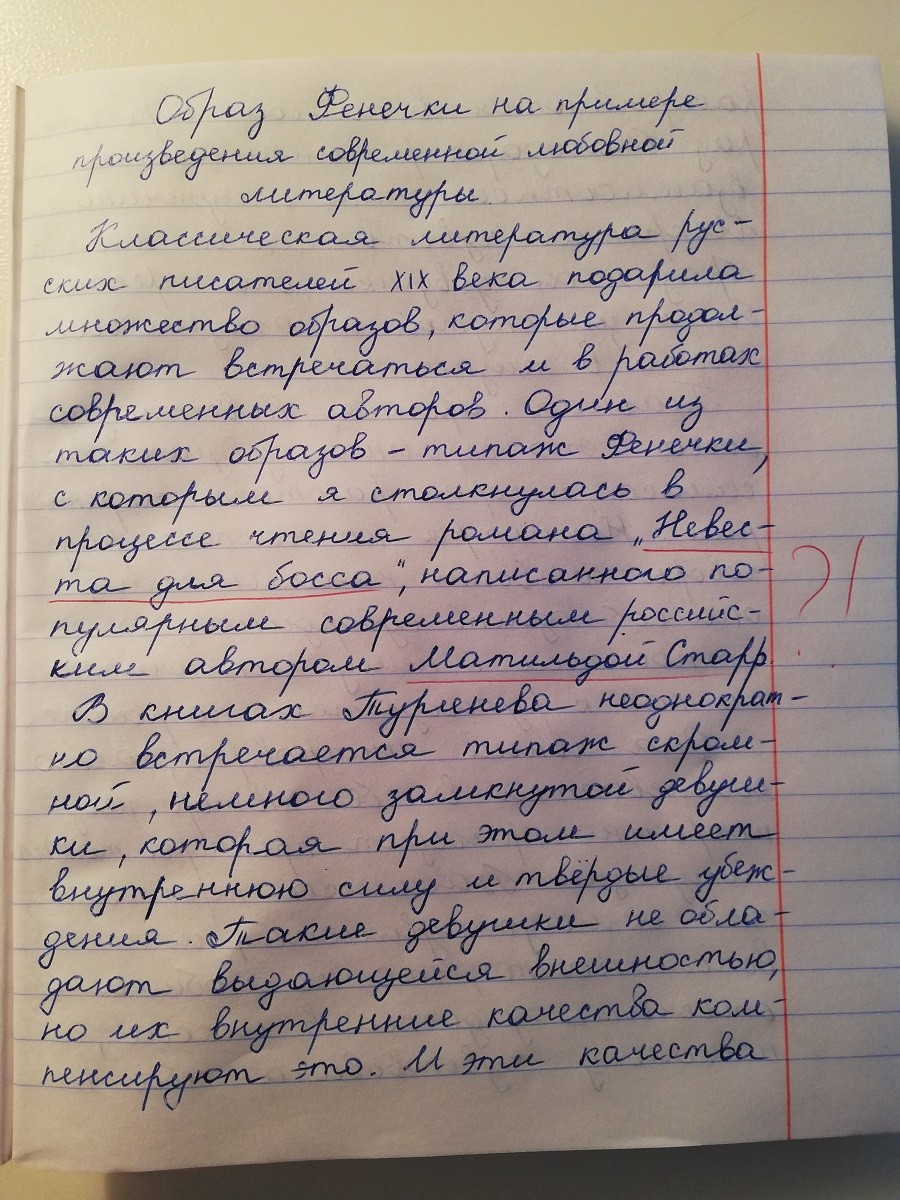 Образ Фенечки на примере
произведения современной любовной
литературы.
Классическая литература рус-
ских писателей XIX века подарила
множество образов, которые продол-
жают встречаться и в работах
современных авторов. Один из
таких образов - типаж Фенечки,
с которым я столкнулась в
процессе чтения романа „Невес-
та для босса", написанного по-
пулярным современным российс-
ким автором Матильдой Старр.
?!
В книгах Тургенева неоднократ-
но встречается типаж скром-
ной, немного замкнутой девуш-
ки, которая при этом имеет
внутреннюю силу и твёрдые убеж-
дения. Такие девушки не обла-
дают выдающейся внешностью,
но их внутренние качества ком-
пенсируют это. И эти качества